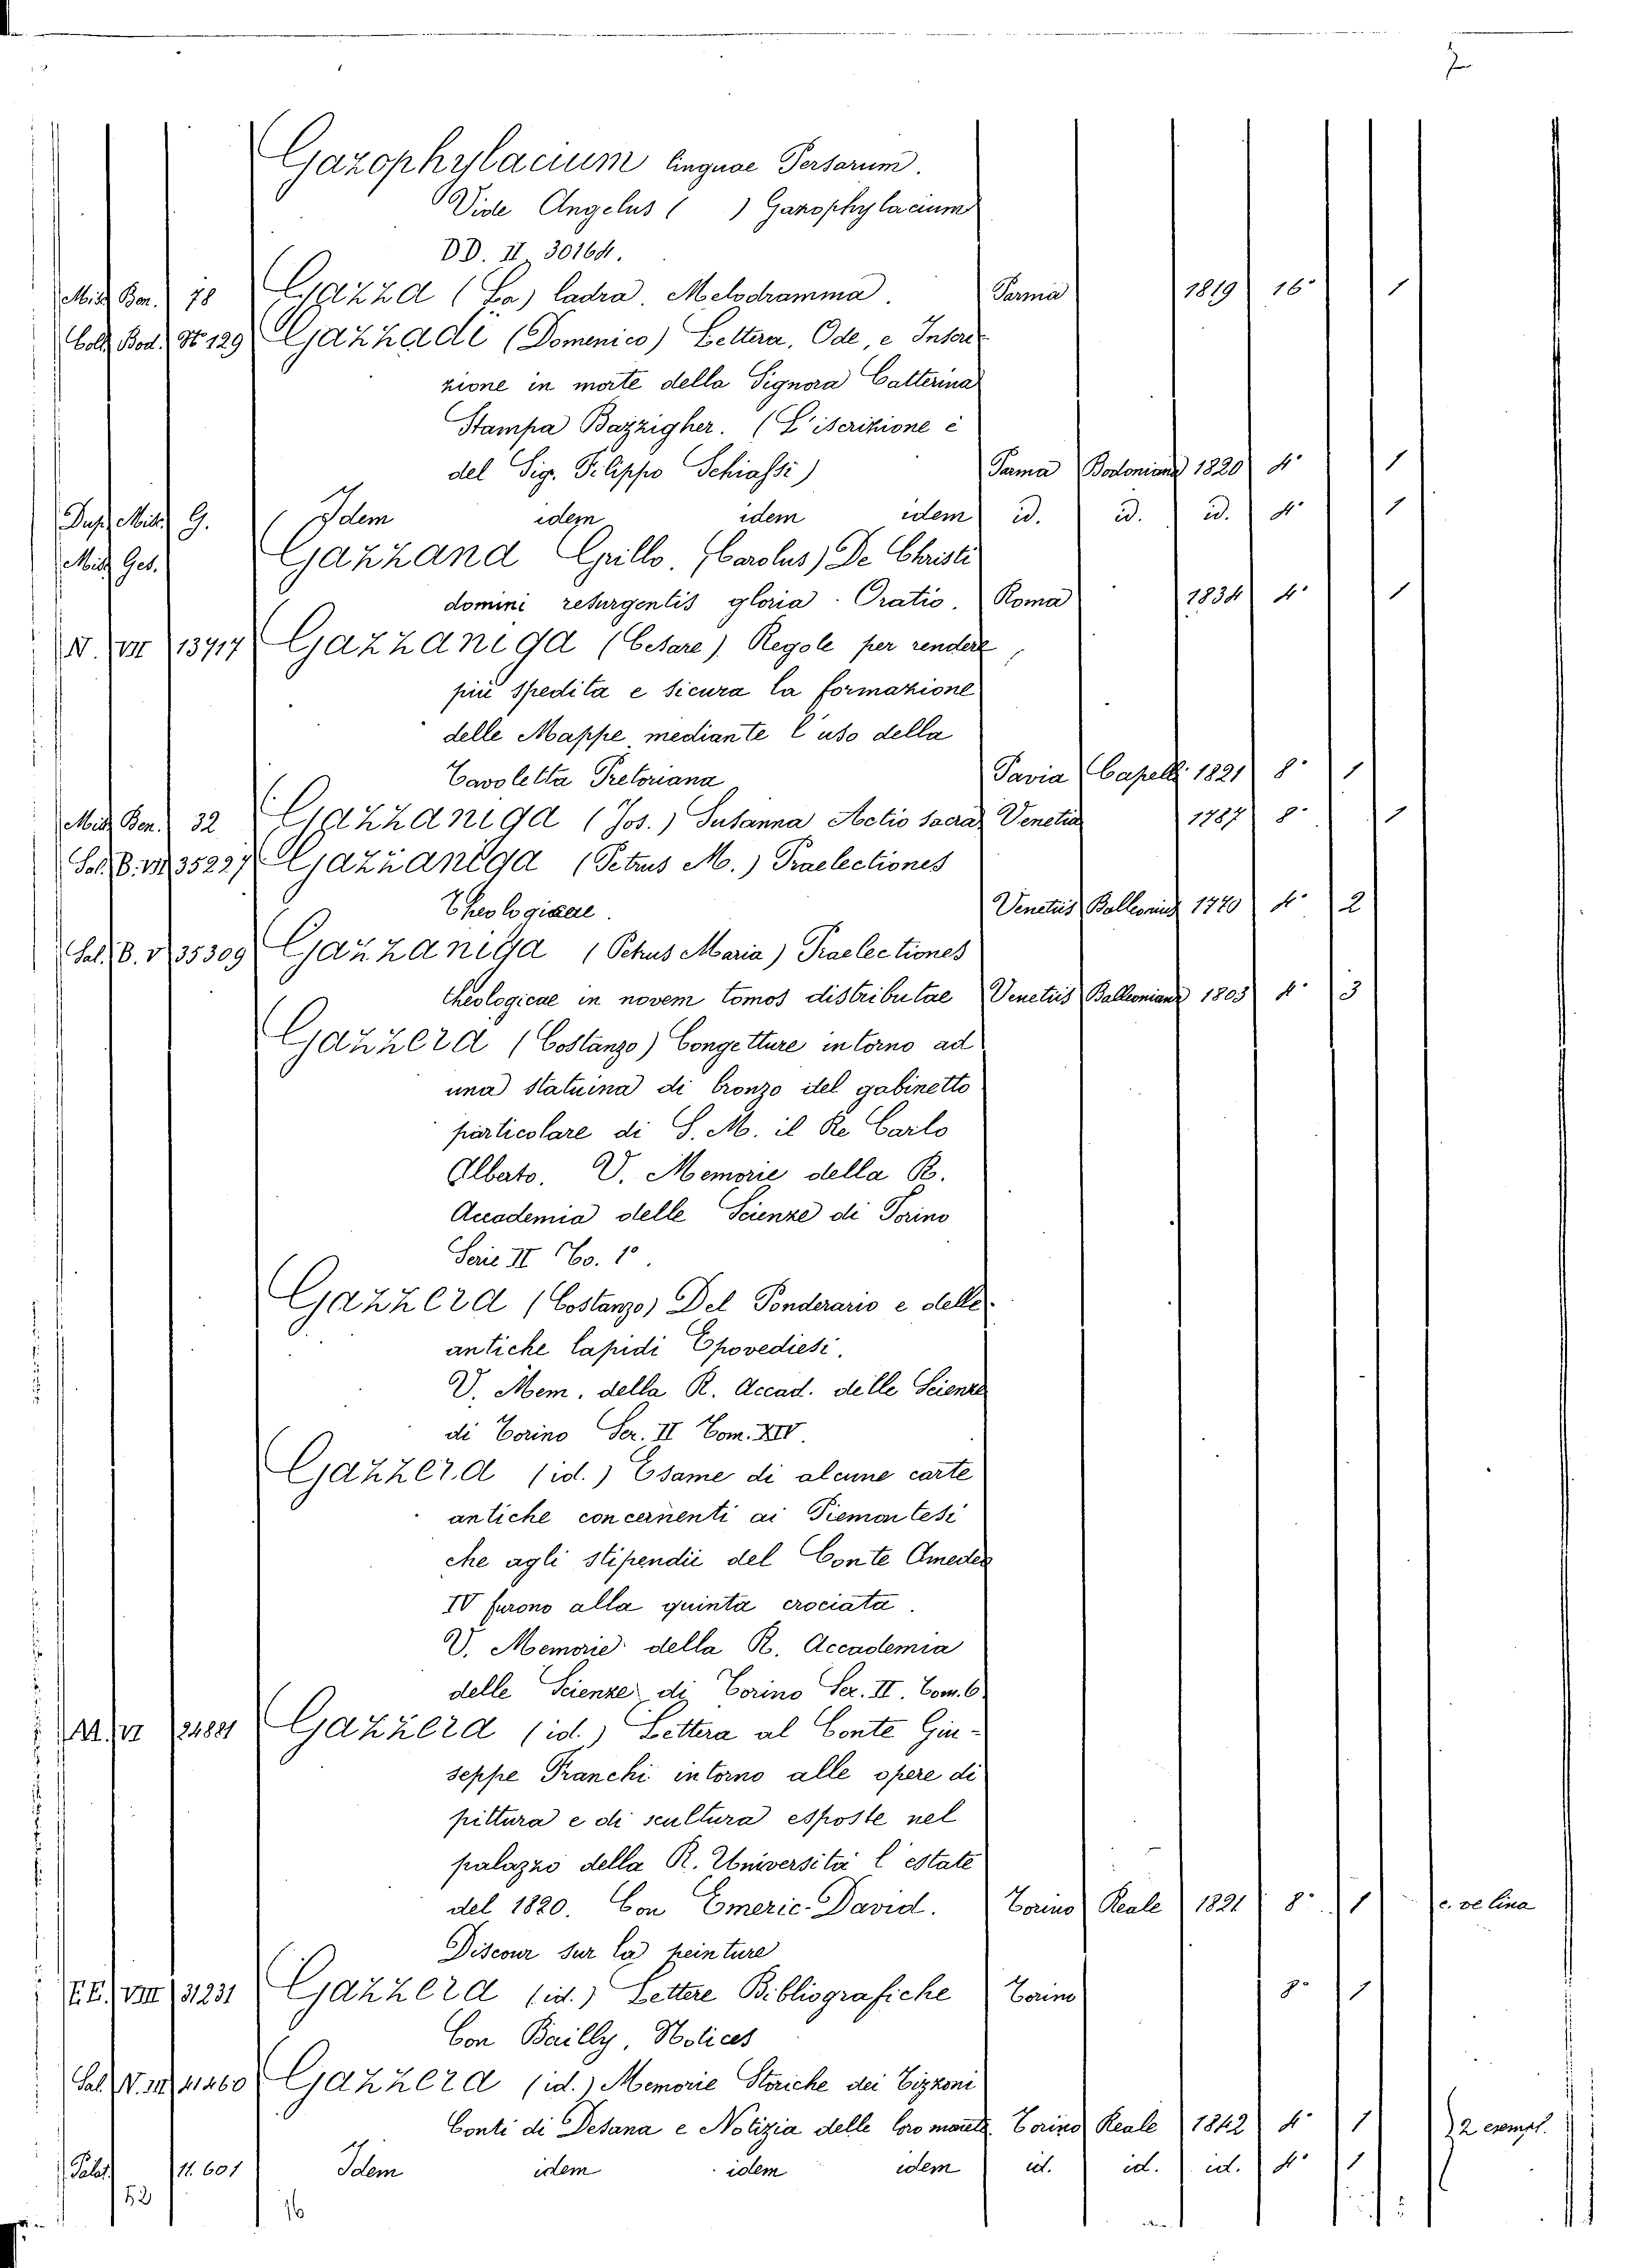 7
Gazophylacium linguae Persarum.
Vide Angelus ( ) Gazophylacium
DD. II 30164.
Misc. Ben. 78 Gazza (La) ladra. Melodramma. Parma 1819 16° 1
Coll. Bod. N° 129 Gazzadi (Domenico) Lettera, Ode, e Inscri-
zione in morte della Signora Catterina
Stampa Bazzigher. (L'iscrizione è
del Sig. Filippo Schiassi) Parma Bodoniana 1820 4° 1
Dup. Misc. G. Idem idem idem idem id. id. id. 4° 1
Misc. Ges. Gazzand Grillo. (Carolus) De Christi
domini resurgentis gloria. Oratio. Roma 1834 4° 1
N. VII 13717 Gazzaniga (Cesare) Regole per rendere
più spedita e sicura la formazione
delle Mappe mediante l'uso della
Tavoletta Pretoriana Pavia Capelli 1821 8° 1
Misc. Ben. 32 Gazzaniga (Jos.) Susanna Actio sacra Venetia 1787 8° 1
Sal. B. VI 35227 Gazzaniga (Petrus M.) Praelectiones
Theologicae. Venetiis Balleonis 1770 4° 2
Sal. B. V 35309 Gazzaniga (Petrus Maria) Praelectiones
theologicae in novem tomos distributae Venetiis Balleoniana 1803 4° 3
Gazzera (Costanzo) Congetture intorno ad
una statuina di bronzo del gabinetto
particolare di S. M. il Re Carlo
Albato. V. Memorie della R.
Accademia delle Scienze di Torino
Serie II To. 1°.
Gazzera (Costanzo) Del Ponderario e delle
antiche lapidi Epovediesi.
V. Mem. della R. Accad. delle Scienze
di Torino Ser. II Tom. XIV.
Gazzera (id.) Esame di alcune carte
antiche concernenti ai Piemontesi
che agli stipendii del Conte Amedeo
IV furono alla quinta crociata.
V. Memorie della R. Accademia
delle Scienze di Torino Ser. II. Tom. 6
M. VI 24881 Gazzera (id.) Lettera al Conte Giu-
seppe Franchi intorno alle opere di
pittura e di scultura esposte nel
palazzo della R. Università l'estate
del 1820. Con Emeric-David. Torino Reale 1821 8° 1 c. velina
Discour sur la peinture
E.E. VIII 31231 Gazzera (id.) Lettere Bibliografiche Torino 8° 1
Con Bailly, Notices
Sal. N. III 41460 Gazzera (id.) Memorie Storiche dei Tizzoni
Conti di Desana e Notizia delle loro monete Torino Reale 1842 4° 1 2 esempl.
Palat. 11.601 Idem idem idem idem id. id. id. 4° 1
52
16